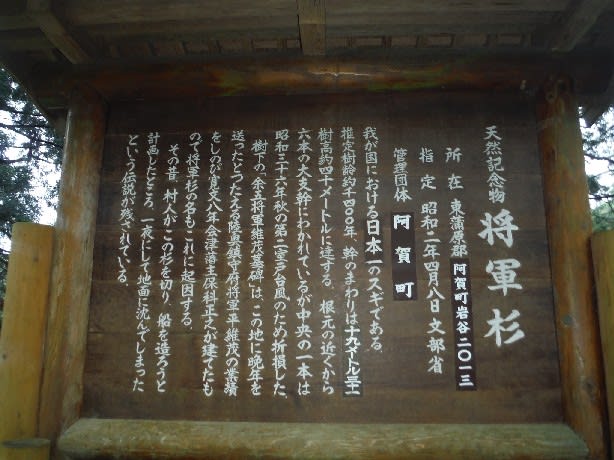 天然記念物 将軍杉
所在 東蒲原郡阿賀町岩谷二〇一三
指定 昭和二年四月八日 文部省
管理団体 阿賀町
我が国における日本一のスギである。
推定樹齢約一四〇〇年、幹のまわりは十九メートル三一
樹高約四十メートルに達する。根元の近くから
六本の大支幹にわかれているが中央の一本は
昭和三十六年秋の第二室戸台風のため折損した。
樹下の「余五将軍維茂墓碑」は、この地に晩年を
送ったとつたえる陸奥鎮守府将軍平維茂の業績
をしのび寛文八年会津藩主保科正之が建てたも
ので将軍杉の名もこれに起因する。
その昔、村人がこの杉を切り、船を造ろうと
計画したところ、一夜にして地面に沈んでしまった
という伝説が残されている。